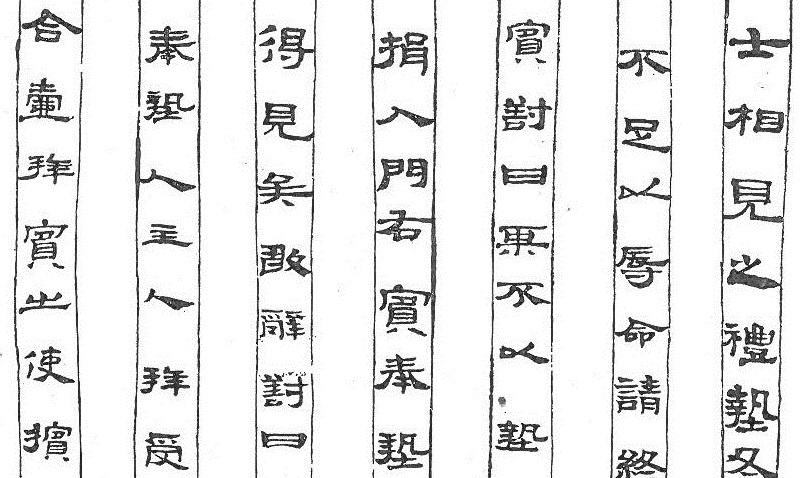 士相見之禮摯冬
不足以辱命請終
賓對曰某不以摯
揖入門右賓奉摯
得見矣敢辭對曰
奉摯入主人拜受
合壹拜賓出使擯